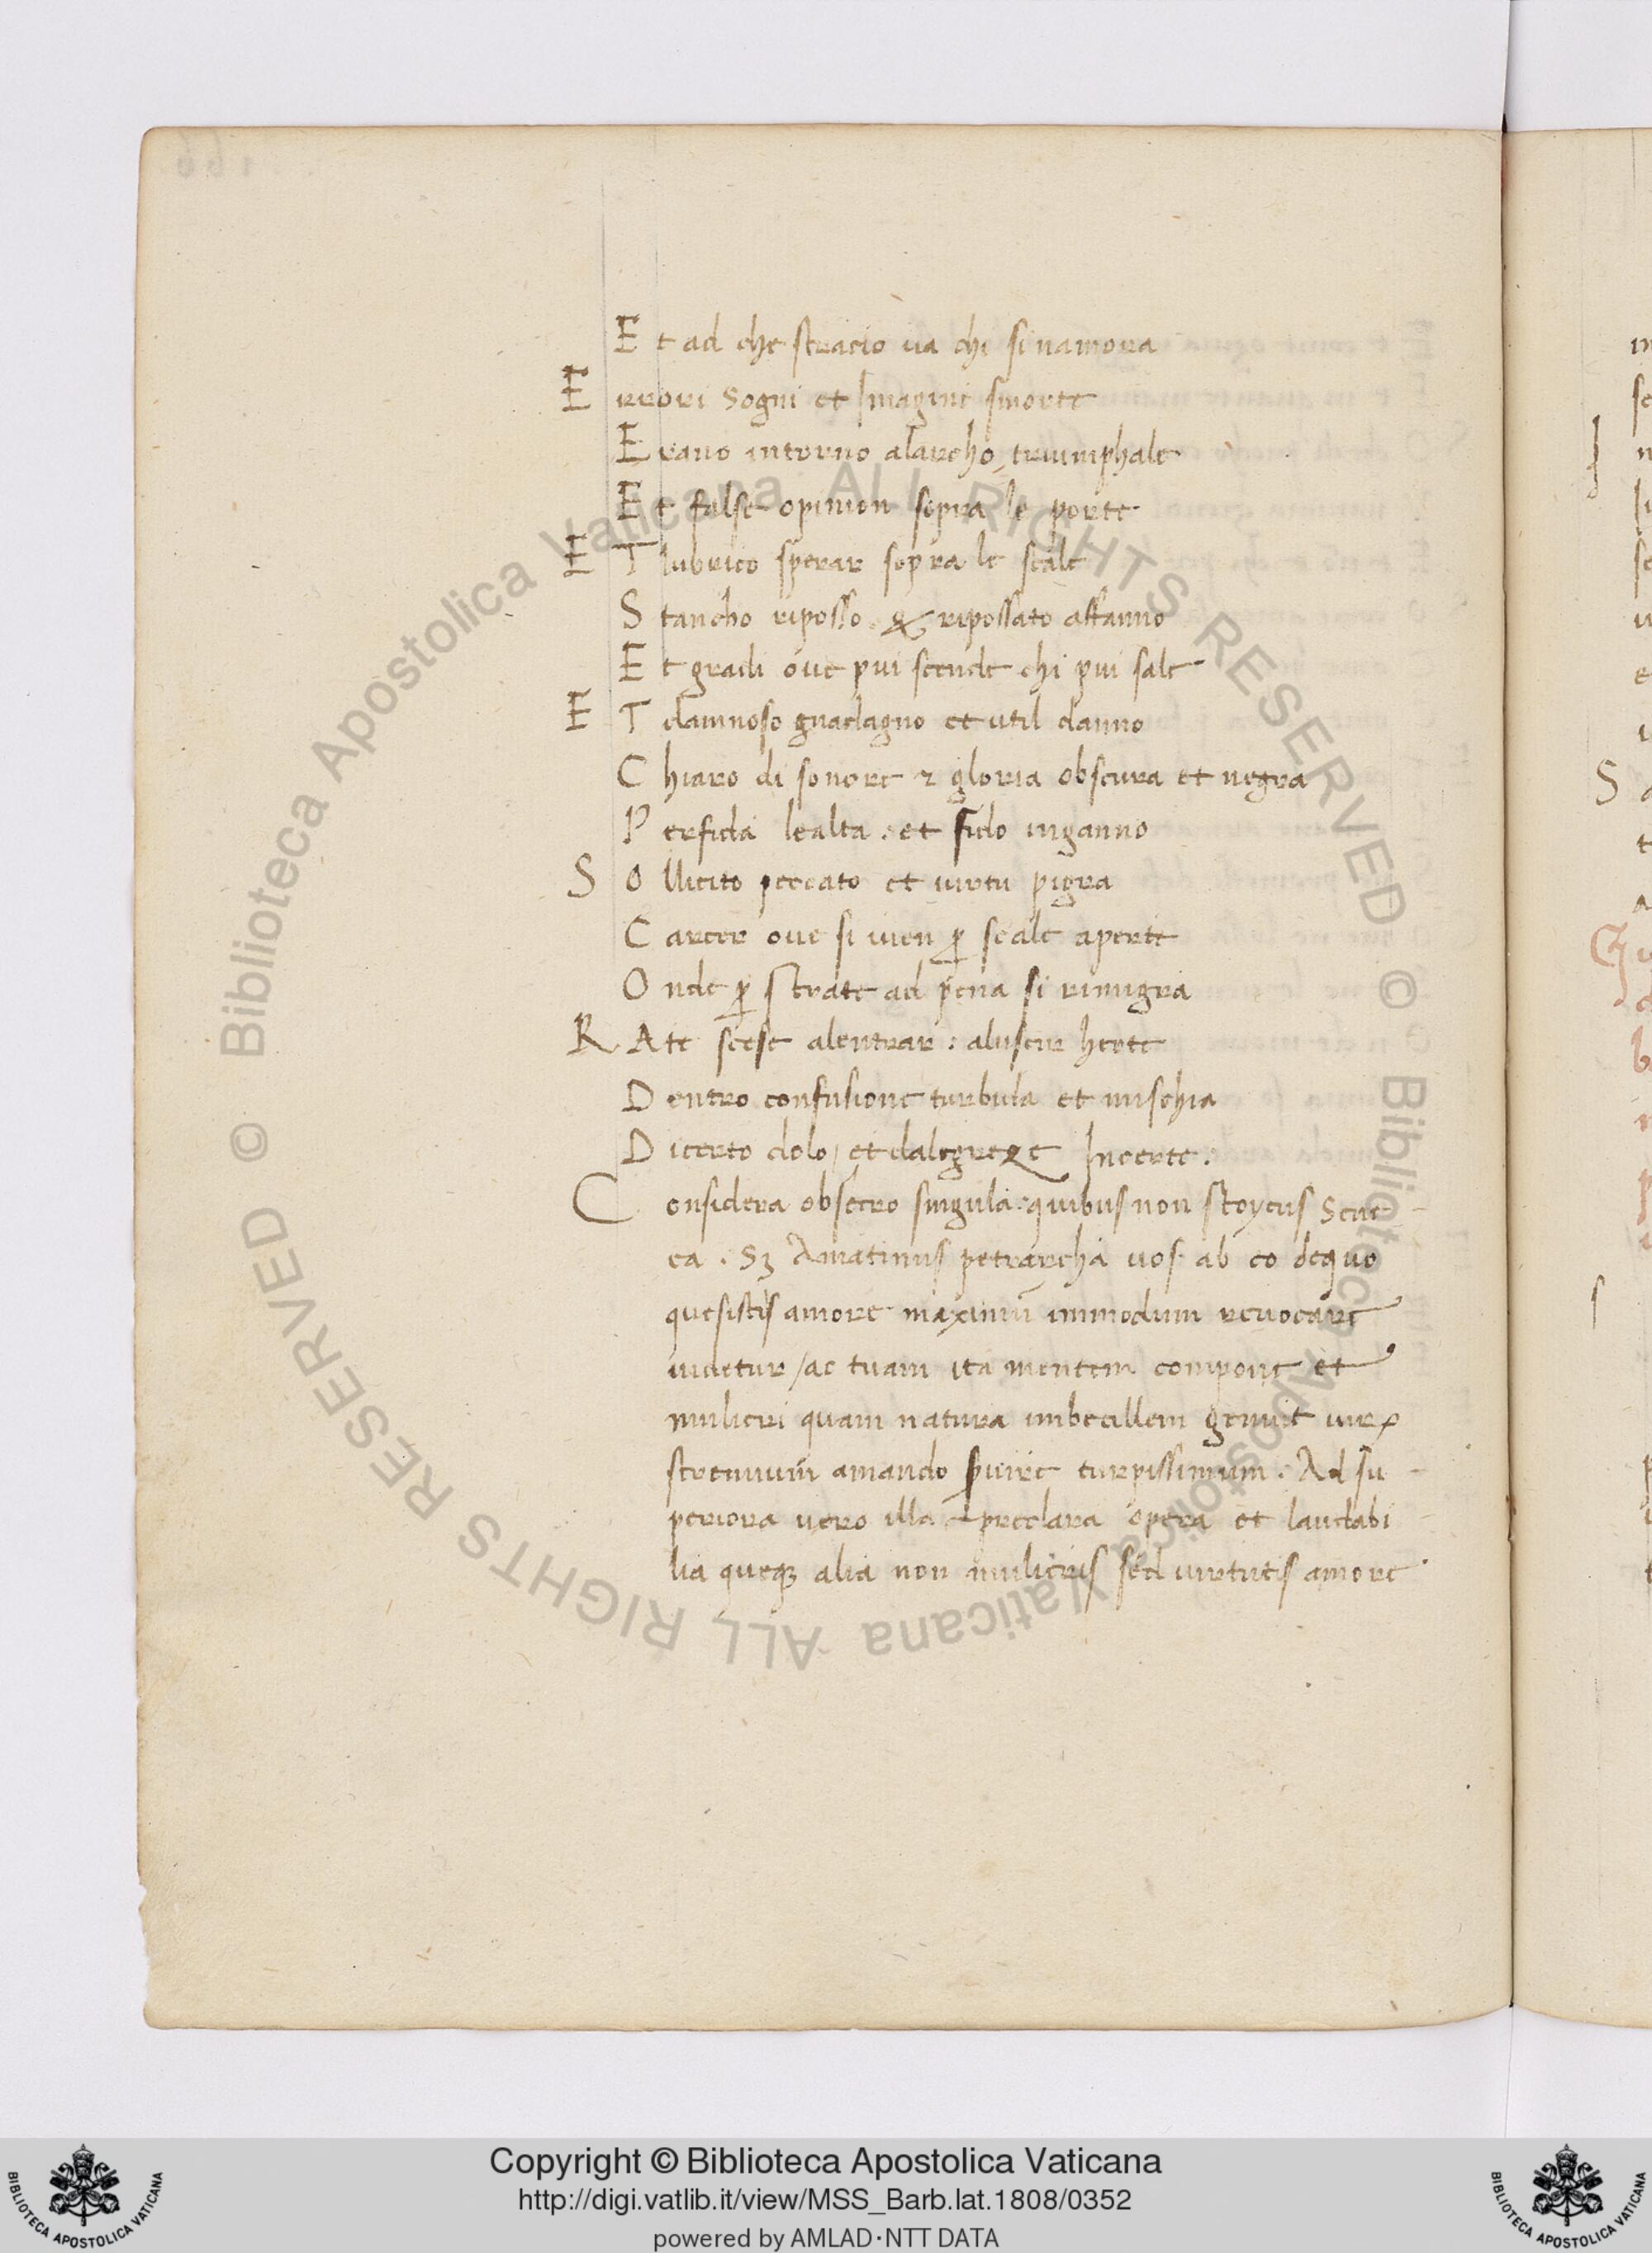 E t ad che stracio ua chi sinamora
E rrori Sogni et Imagine smorte
E rano intorno alarcho, triumphale
E t false opinion sopra le porte
E T lubrico sperar sopra le scale
S tancho riposso. & ripossato affanno
E t gradi oue pui scende chi pui sale
E T damnoso guadagno et util danno
C hiaro di sonore ⁊ gloria obscura et negra
P erfida lealta. et fido inganno
S O llicito peccato et uirtu pigra
C arcer oue si uien ꝑ scale aperte
O nde ꝑ strate ad pena si rimigra
R Ate scese alentrar: aluscir herte
D entro confusione turbula et mischia
D icerto dolo, et dalegreçe Incerte.
C onsidera obsecro singula. quibus non stoycus Sene-
ca. Sꝫ Amatinus petrarcha uos ab eo dequo
quesistis amore maximū immodum reuocare
uidetur / ac tuam ita mentem compone et
mulieri quam natura imbecillem genuit uirꝝ
strenuum amando ꝑuire turpissimum. Ad su-
periora uero illa & preclara opera et laudabi-
lia queqꝫ alia non mulieris sed uirtutis amore
Copyright © Biblioteca Apostolica Vaticana
http://digi.vatlib.it/view/MSS_Barb.lat.1808/0352
powered by AMLAD·NTT DATA
BIBLIOTECA APOSTOLICA VATICANA
BIBLIOTECA APOSTOLICA VATICANA
© Biblioteca Apostolica Vaticana ALL RIGHTS RESERVED
© Biblioteca Apostolica Vaticana ALL RIGHTS RESERVED